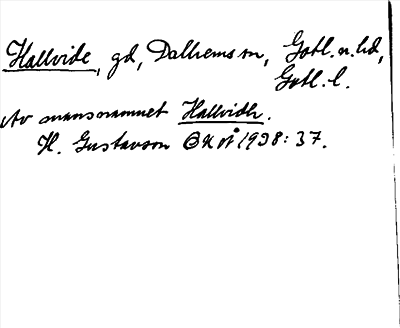 Hallvide, gd, Dalhems sn, Gotl. n. hd,
Gotl. l.
Av mansnamnet Hallvidh.
H. Gustavson 1938: 37.